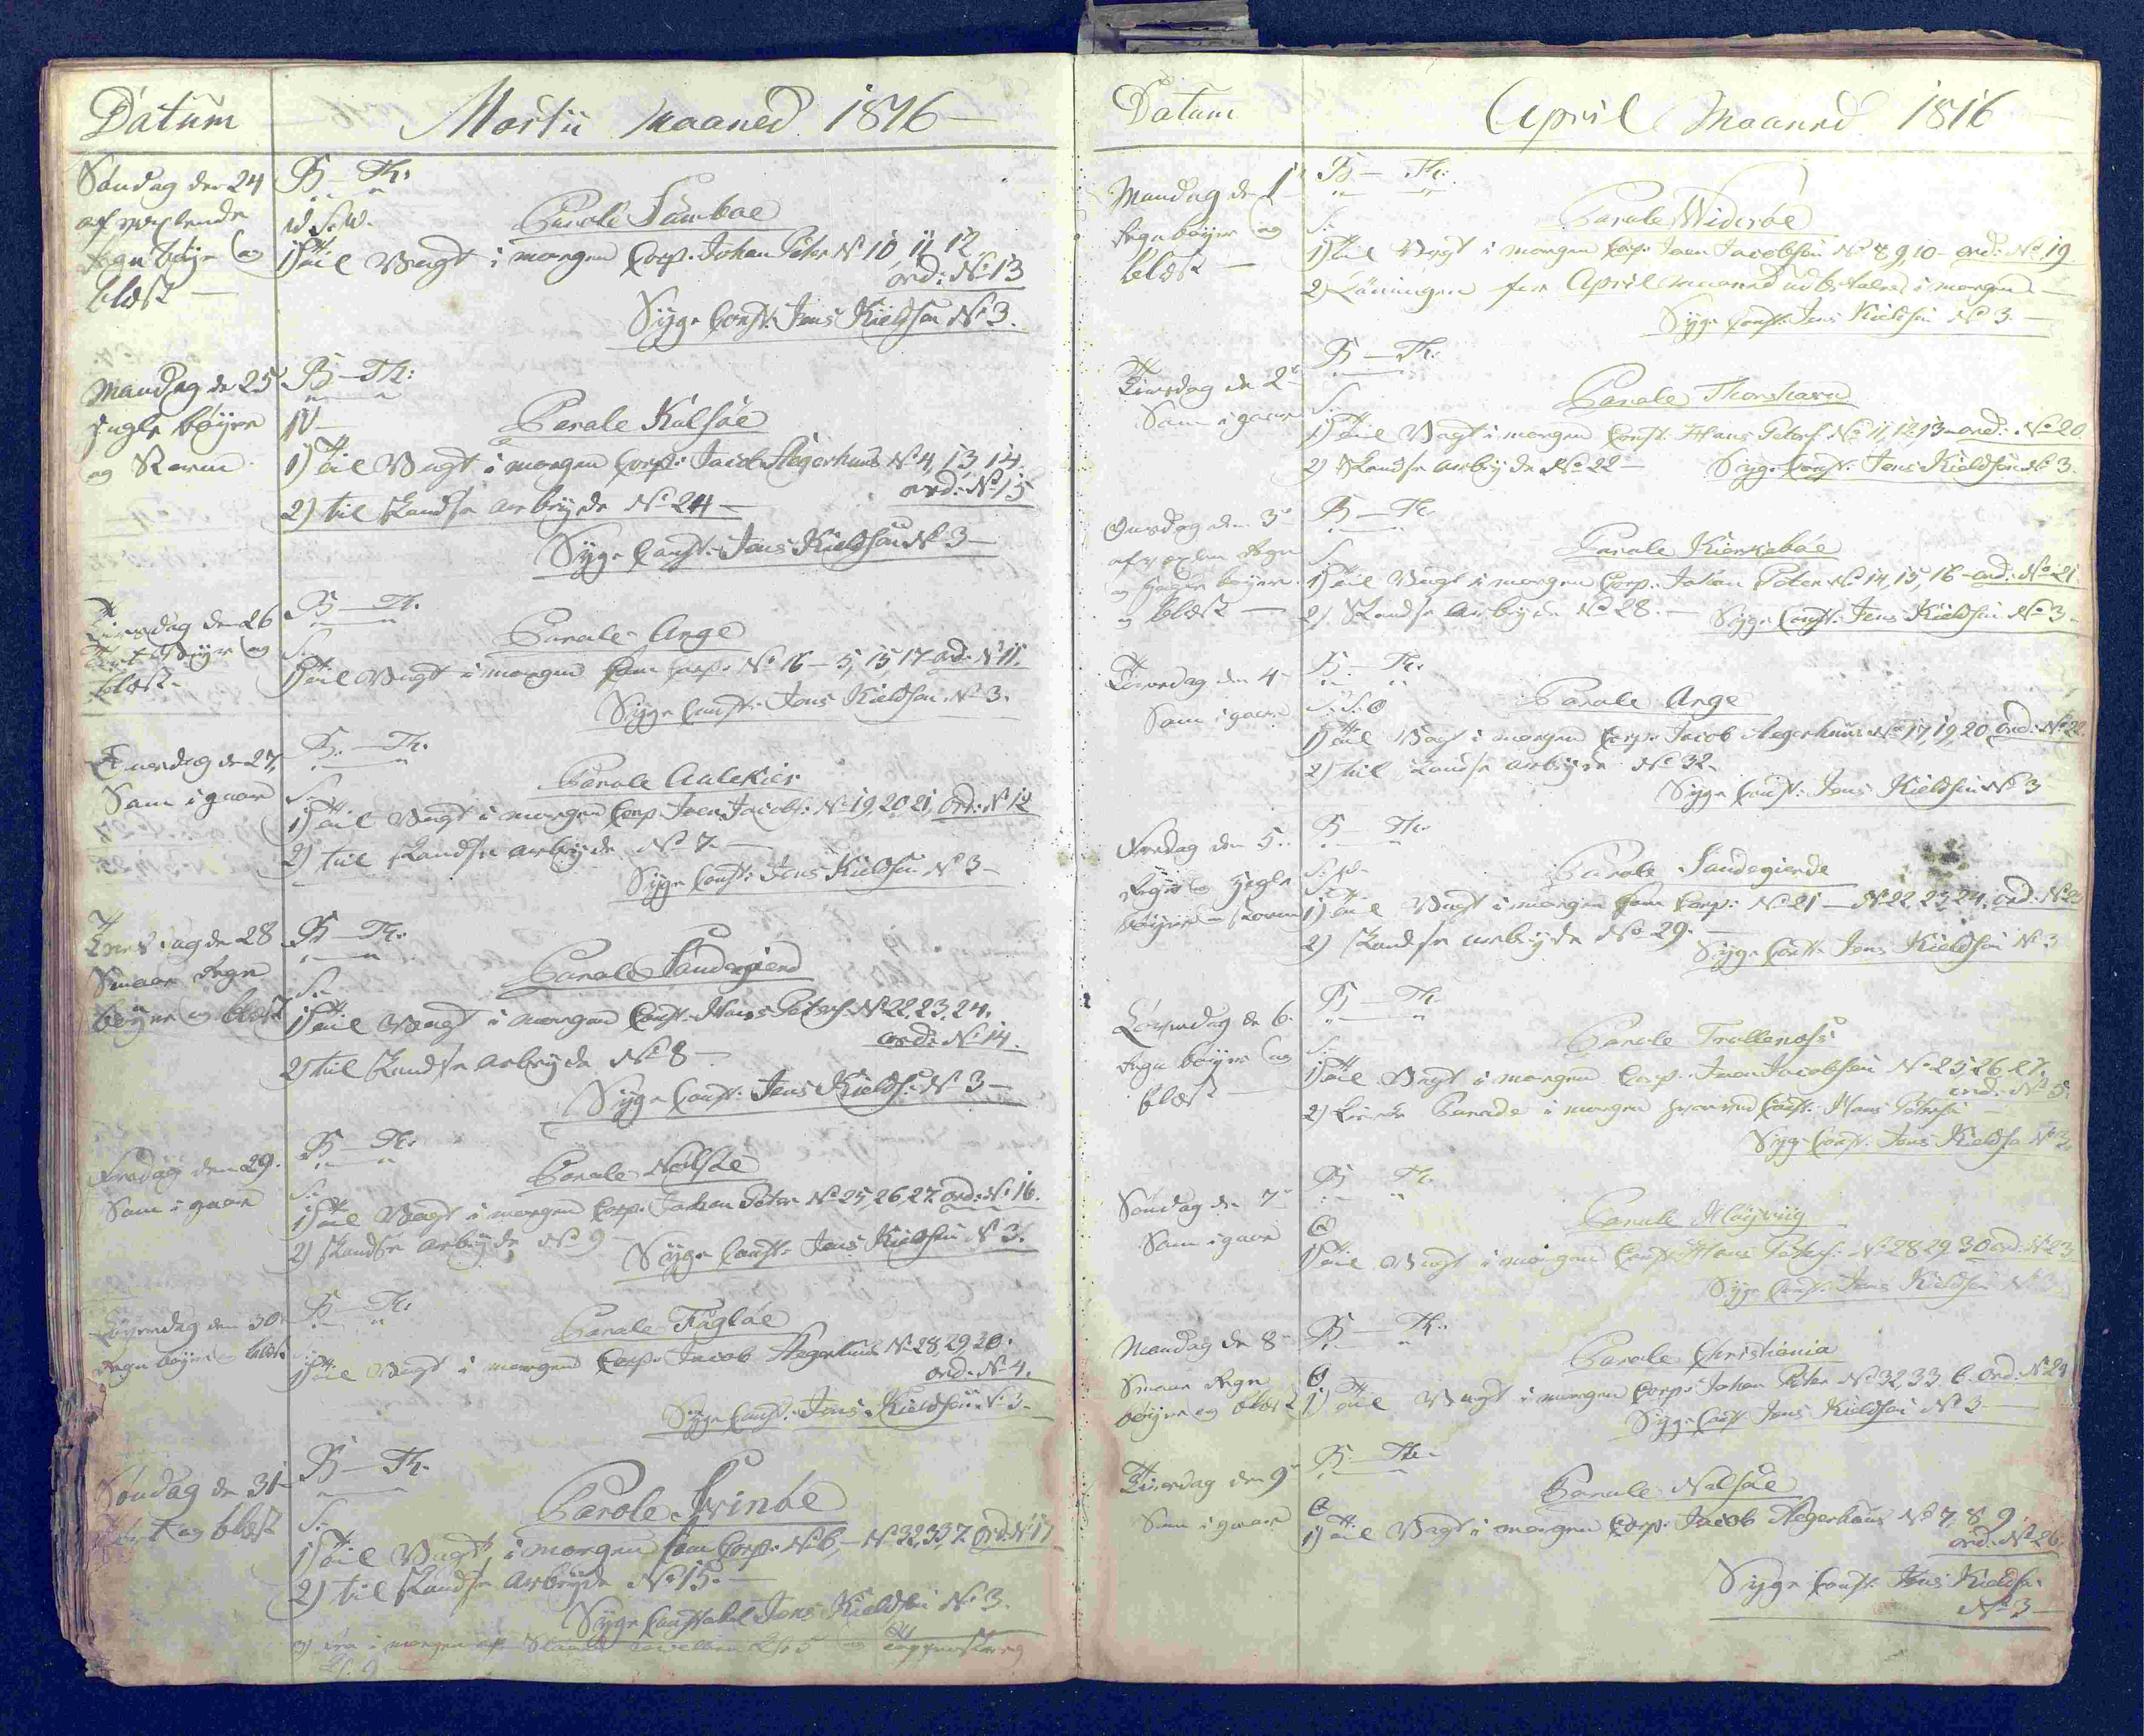 Datum
Martii Maaned 1816
Søndag den 24
afvexlende
Regn bøye og
blæst
B — Th:
S.W.
Parole Sumboe
1) til Vagt i morgen Corp. Johan Peter No 10 11 12
ord: No 13
Syge Const: Jens Kieldsen No 3.
Mandag de 25
Jugle bøyer
og Storm
B — Th:
Parole Kalsøe
1) til Vagt i morgen Corp: Jacob Aegerhuus No 4, 13 14.
ord: No 15
2) til Skandse arbeyde No 24
Syge Const: Jens Kieldsen No 3
Tiirsdag den 26
bøyer og
blæst
B — Th.
S.
Parole Ange
1) til Vagt i morgen som Corp. No 16 — 5, 15 17 ord: No 11.
Syge Const: Jens Kieldsen No 3.
Onsdag de 27,
Som i gaar
B. — Th.
S.
Parole Aalekier
1) til Vagt i morgen Corp. Joen Jacobs: No 19, 20, 21, ord: No 12
2) til Skandse arbeyde No 7.
Syge Const: Jens Kieldsen No 3
Torsdag de 28
Smaae Regn
bøyer og blæst
B — Th.
S.
Parole Sandegierd
1) til Vagt i morgen Const: Hans Peters. No 22, 23, 24.
ord: No 14.
2) til Skandse arbeyde No 8
Syge Const: Jens Kields: No 3
Fredag den 29.
Som i gaar
B — Th:
S.
Parole Nolsøe
1) til Vagt i morgen Corp. Johan Peter No 25, 26, 27. ord: No 16.
2) Skandse arbeyde No 9
Syge Const: Jens Kieldsen No 3.
Løverdag den 30
Regn bøyer og blæst
B — Th:
Parole Fugløe
1) til Vagt i morgen Corp: Jacob Aegerhuus No 28, 29, 30.
ord: No 4.
Syge Const: Jens Kieldsen No 3
Søndag de 31
og blæst
B — Th.
S.
Parole Svinøe
1) til Vagt i morgen som Corp: No 6, — No 32, 33, 7. ord: No 17
2) til Skandse Arbeyde No 15.
Syge Constabel Jens Kieldsen No 3.
3) i morgen No 5 og
Datum
April Maaned 1816
Mandag de 1
Regn bøyer og
blæst
B — Th:
S.
Parole Widerøe
1) til Vagt i morgen Corp. Joen Jacobsen No 8 9 10 — ord: No 19
2) Lønningen for April maaned udbetales i morgen
Syge Const: Jens Kieldsen No 3.
Tiirsdag de 2
Som i gaar
B — Th:
S.
Parole Thorshavn
1) til Vagt i morgen Const. Hans Peters. No 11, 12, 13 ord: No 20
2) Skandse arbeyde No 22
Syge Const: Jens Kieldsen No 3.
Onsdag den 3
afvexlen Regn
og bøyer
og blæst
B — Th.
S.
Parole Kierkebøe
1) til Vagt i morgen Corp. Johan Peter No 14, 15, 16 — ord: No 21
2) Skandse Arbeyde No 28.
Syge Const: Jens Kieldsen No 3
Torsdag den 4
Som i gaar
B — Th.
S.S.O
Parole Ange
1) til Vagt i morgen Corp: Jacob Aegerhuus No 17, 19, 20, ord: No 22
2) til Skandse arbeyde No 32
Syge Const: Jens Kieldsen No 3
Fredag den 5.
Regn og Hegle
bøyer Storm
B — Th.
Parole Sandegierde
1) til Vagt i morgen som Corp: No 21 — No 22, 23, 24, ord: No 23
2) Skandse arbeyde No 29.
Syge Const: Jens Kieldsen No 3
Løverdag de 6.
Regn bøyer og
blæst
B — Th
S.
Parole Trollenæss
1) til Vagt i morgen Corp: Joen Jacobsen No 25 26, 27.
ord: No 5.
2) Kierke Parade i morgen Const: Hans Petersen
Syge Const: Jens Kieldsen No 3
Søndag den 7
Som i gaar
B — Th.
O
Parole Høyviig
1) til Vagt i morgen Const: Hans Peters: No 28 29 30 ord: No 23
Syge Const: Jens Kieldsen No 3
Mandag de 8
Smaae Regn
bøyer og blæst
B — Th:
O
Parole Christiania
1) til Vagt i morgen Corp: Johan Peter No 32 33, 6. ord: No 24
Syge Const Jens Kieldsen No 3
Tiirsdag den 9
Som i gaar
B — Th.
O
Parole Nolsøe
1) til Vagt i morgen Corp: Jacob Aegerhuus No 7, 8, 9
ord: No 26.
Syge Const: Jens Kieldsen
No 3